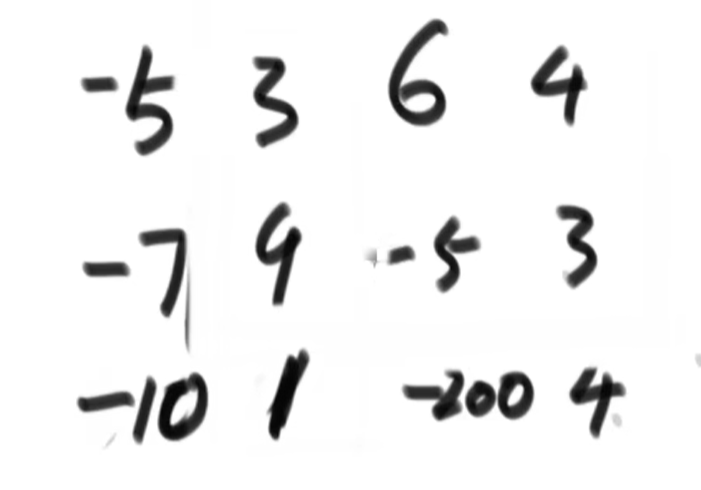 -5 3 6 4
-7 9 -5 3
-10 1 -200 4